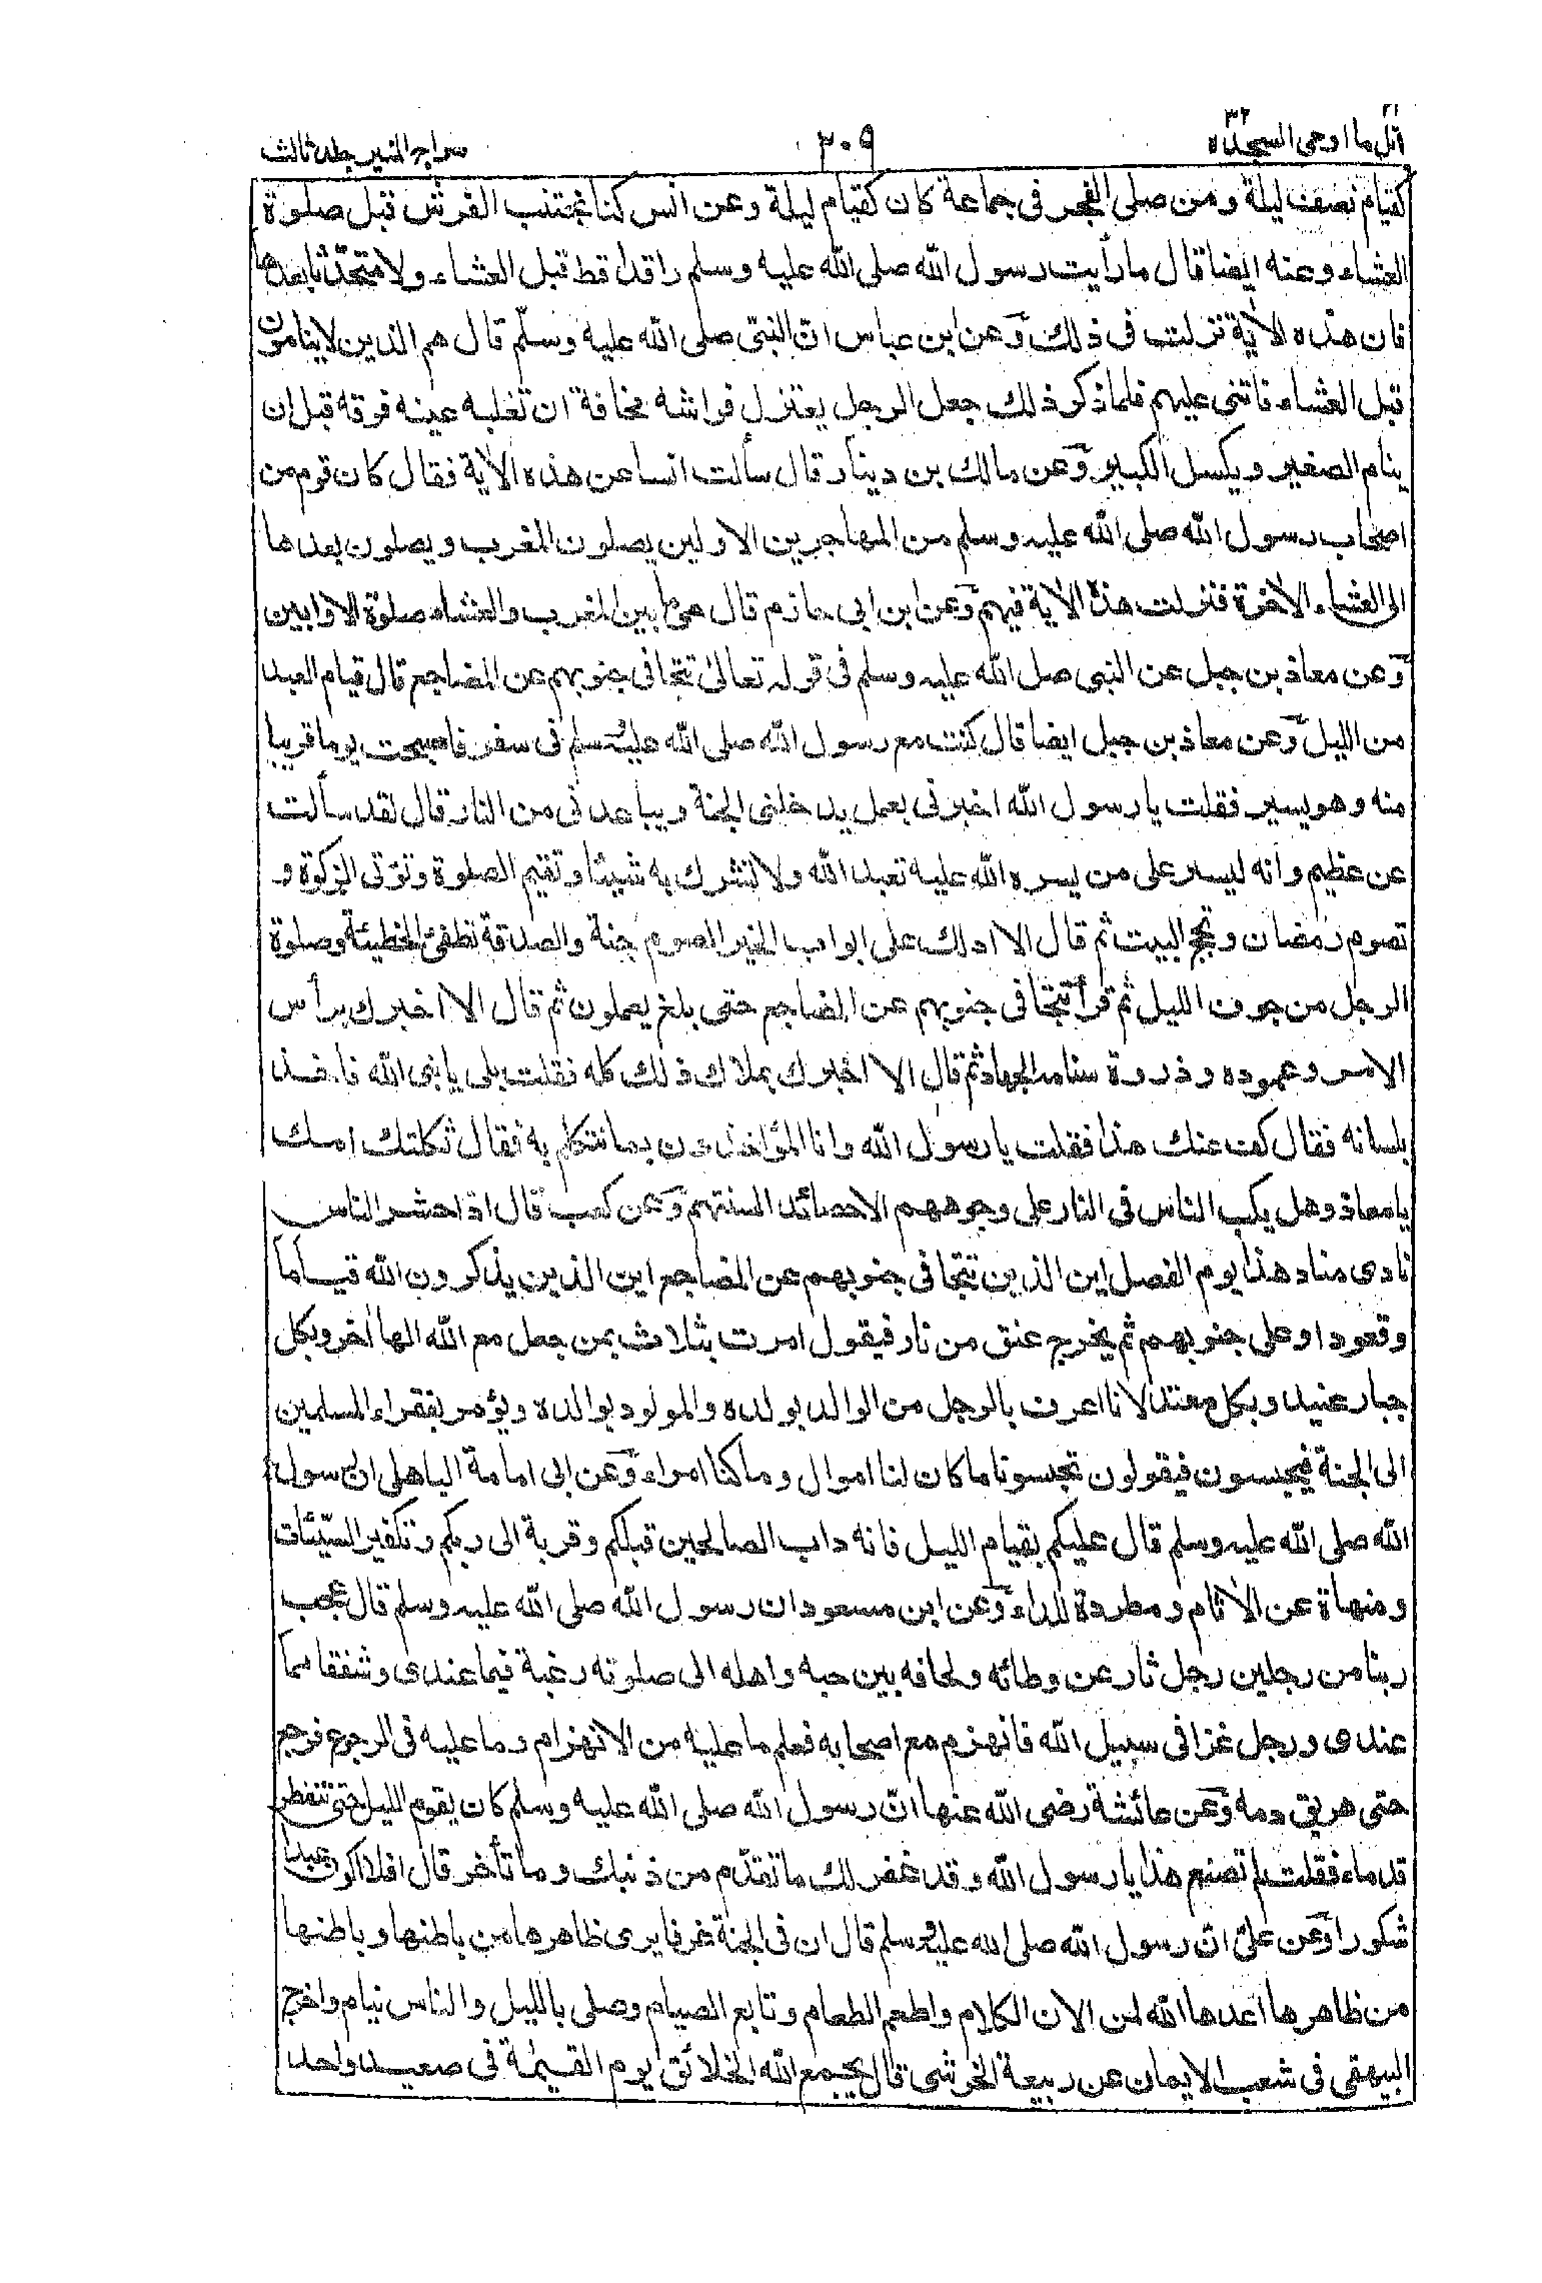 اتل ما اوحی السجدة ٣٢ ٢١
٢٠٩
سراج المنیر جلد ثالث
كقيام نصف ليلة ومن صلى الفجر فى جماعة كان كقيام ليلة وعن انس كنا نجتنب الفرش قبل صلوة
العشاء وعنه ايضا قال ما رأيت رسول الله صلى الله عليه وسلم راقدا قط قبل العشاء ولا متحدّثا بعدها
فان هذه الاٰية نزلت فى ذلك وعن ابن عباس انّ النبىّ صلى الله عليه وسلّم قال هم الذين لا ينامون
قبل العشاء فاثنى عليهم فلما ذكر ذلك جعل الرجل يعتزل فراشه مخافة ان تغلبه عينه فوقه قبل ان
ينام الصغير ويكسل الكبير وعن مالك بن دينار قال سألت انسا عن هذه الاٰية فقال كان قوم من
اصحاب رسول الله صلى الله عليه وسلم من المهاجرين الاولين يصلون المغرب ويصلون بعدها
الى العشاء الاٰخرة فنزلت هذه الاٰية فيهم وعن ابن ابى حازم قال هى ما بين المغرب والعشاء صلوٰة الاوابين
وعن معاذ بن جبل عن النبى صلى الله عليه وسلم فى قوله تعالىٰ تتجافى جنوبهم عن المضاجع قال قيام العبد
من الليل وعن معاذ بن جبل ايضا قال كنت مع رسول الله صلى الله عليه وسلم فى سفر فاصبحت يوما قريبا
منه وهو يسير فقلت يا رسول الله اخبرنى بعمل يدخلنى الجنة ويباعدنى من النار قال لقد سألت
عن عظيم وانه ليسير على من يسره الله عليه تعبد الله ولا تشرك به شيئا وتقيم الصلوة وتؤتى الزكوة و
تصوم رمضان وتحج البيت ثم قال الا ادلك على ابواب الخير الصوم جنة والصدقة تطفئ الخطيئة وصلوة
الرجل من جوف الليل ثم قرأ تتجافى جنوبهم عن المضاجع حتى بلغ يعملون ثم قال الا اخبرك برأس
الامر وعموده وذروة سنامه الجهاد ثم قال الا اخبرك بملاك ذلك كله فقلت بلى يا نبى الله فاخذ
بلسانه فقال كف عنك هذا فقلت يا رسول الله وانا المؤاخذون بما نتكلم به فقال ثكلتك امك
يا معاذ وهل يكب الناس فى النار على وجوههم الا حصائد السنتهم وعن كعب قال اذا حشر الناس
نادى مناد هذا يوم الفصل اين الذين تتجافى جنوبهم عن المضاجع اين الذين يذكرون الله قياما
وقعودا وعلى جنوبهم ثم يخرج عنق من نار فيقول امرت بثلاث بمن جعل مع الله الها اٰخر وبكل
جبار عنيد وبكل معتد لانا اعرف بالرجل من الوالد بولده والمولود بوالده ويؤمر بفقراء المسلمين
الى الجنة فيحبسون فيقولون تحبسونا ما كان لنا اموال وما كنا امراء وعن ابى امامة الباهلى ان رسول
الله صلى الله عليه وسلم قال عليكم بقيام الليل فانه داب الصالحين قبلكم وقربة الى ربكم وتكفير السّيّئات
ومنهاة عن الاٰثام ومطردة للداء وعن ابن مسعود ان رسول الله صلى الله عليه وسلم قال عجب
ربنا من رجلين رجل ثار عن وطائه ولحافه بين حبه واهله الى صلوته رغبة فيما عندى وشفقا مما
عندى ورجل غزا فى سبيل الله فانهزم مع اصحابه فعلم ما عليه من الانهزام وما عليه فى الرجوع فرجع
حتى هريق دمه وعن عائشة رضى الله عنها انّ رسول الله صلى الله عليه وسلم كان يقوم الليل حتى تتفطر
قدماه فقلت لم تصنع هذا يا رسول الله وقد غفر لك ما تقدّم من ذنبك وما تأخر قال افلا اكون عبدا
شكورا وعن علىّ انّ رسول الله صلى الله عليه وسلم قال ان فى الجنة غرفا يرى ظاهرها من باطنها وباطنها
من ظاهرها اعدها الله لمن الان الكلام واطعم الطعام وتابع الصيام وصلى بالليل والناس نيام واخرج
البيهقى فى شعب الايمان عن ربيعة الخرشى قال يجمع الله الخلائق يوم القيٰمة فى صعيد واحد